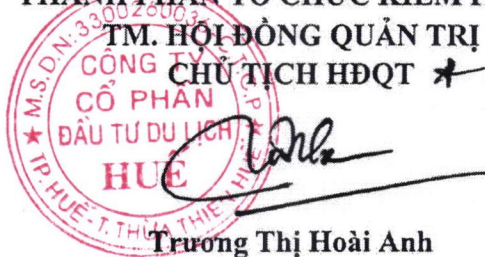 TM. HỘI ĐỒNG QUẢN TRỊ
CHỦ TỊCH HĐQT
CÔNG TY
CỔ PHẦN
ĐẦU TƯ DU LỊCH
HUẾ
TP. HUẾ - T. THỪA THIÊN HUẾ
Trương Thị Hoài Anh